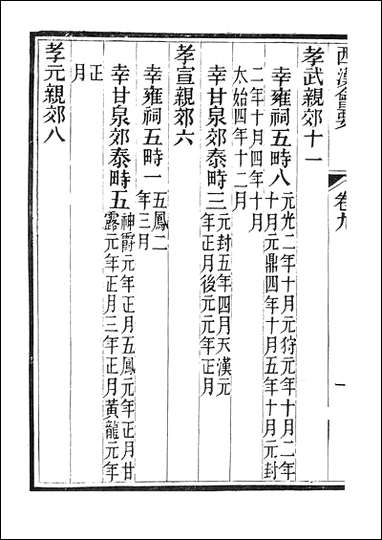 西漢會要 卷九 一
孝武親郊十一
幸雍祠五畤八
元光二年十月元狩元年十月二年
十月元鼎四年十月五年十月元封
二年十月四年十月
太始四年十二月
幸甘泉郊泰畤三
元封五年四月天漢元
年正月後元元年正月
孝宣親郊六
幸雍祠五畤一
五鳳二
年三月
幸甘泉郊泰畤五
神爵元年正月五鳳元年正月甘
露元年正月三年正月黃龍元年
正
月
孝元親郊八